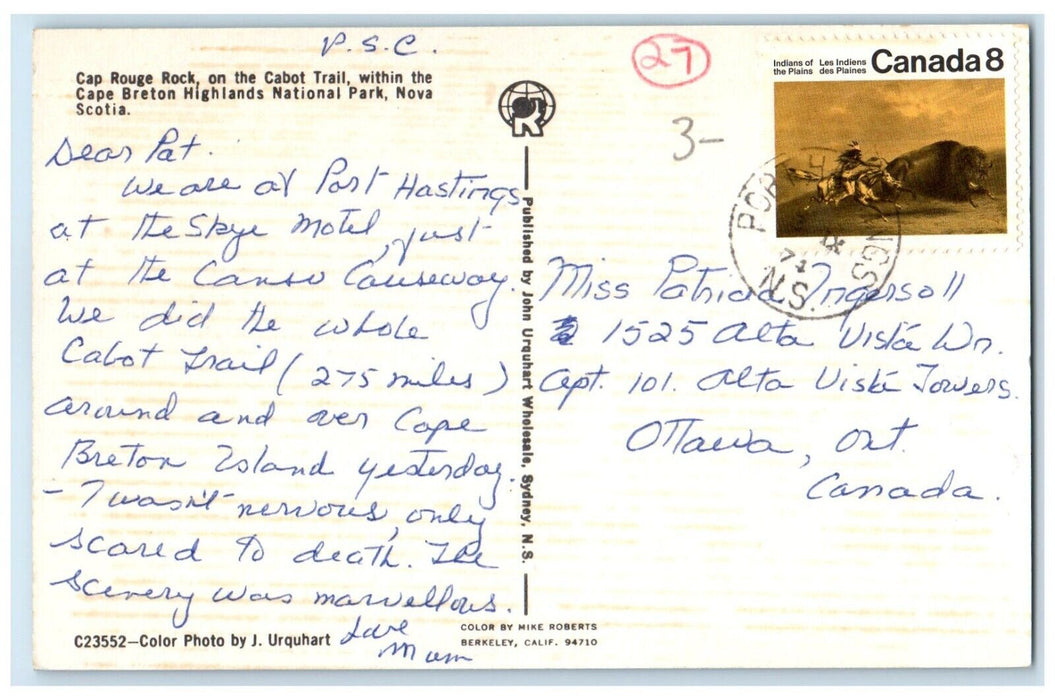 P.S.C.
Cap Rouge Rock, on the Cabot Trail, within the
Cape Breton Highlands National Park, Nova
Scotia.
Dear Pat.
We are at Port Hastings
at the Skye Motel, just
at the Canso Causeway.
We did the whole
Cabot Trail (275 miles)
around and over Cape
Breton Island yesterday.
- I wasn't nervous, only
scared to death. The
scenery was marvellous.
Love
Mum
C23552—Color Photo by J. Urquhart
Published by John Urquhart Wholesale, Sydney, N.S.
COLOR BY MIKE ROBERTS
BERKELEY, CALIF. 94710
27
3-
Indians of the Plains
Les Indiens des Plaines
Canada 8
N.S.
Miss Patricia Ingersoll
1525 Alta Vista Dr.
Apt. 101. Alta Vista Towers.
Ottawa, Ont.
Canada.